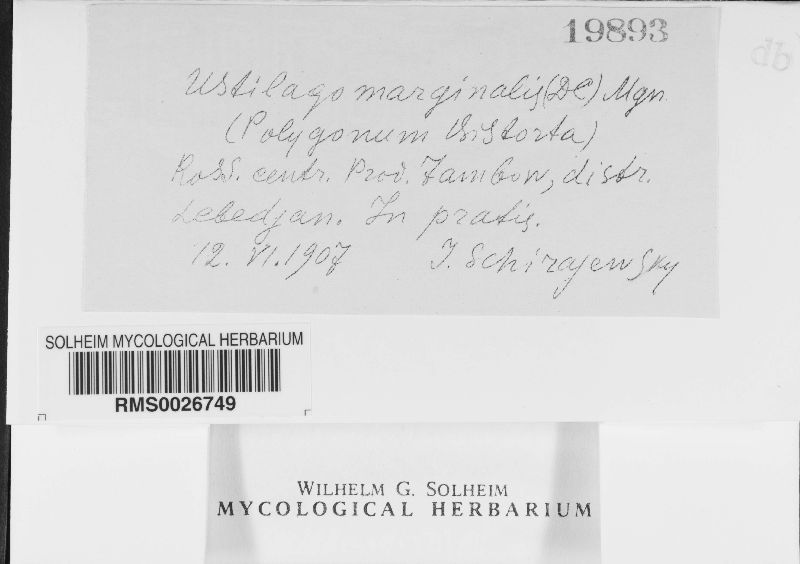 19893
db
Ustilago marginalis (DC) Mgn.
(Polygonum Bistorta)
Ross. centr. Prov. Tambow, distr.
Lebedjan. In pratis.
12. VI. 1907 J. Schirajewsky
SOLHEIM MYCOLOGICAL HERBARIUM
RMS0026749
WILHELM G. SOLHEIM
MYCOLOGICAL HERBARIUM